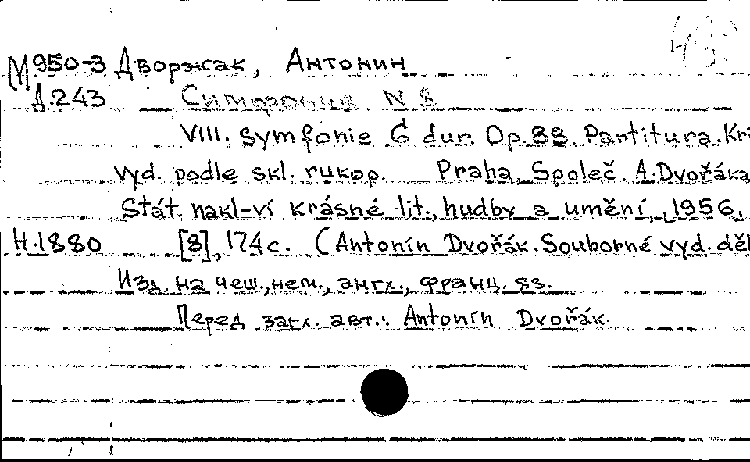 М950-3 Дворжак, Антонин
Д.243 Симфония N 8
VIII. Symfonie G dur. Op.88. Partitura. Kri
vyd. podle skl. rukop. Praha, Společ. A.Dvořáka
Stát. nakl-ví krásné lit., hudby a umění, 1956.
Н.1880 [8], 174 с. (Antonín Dvořák. Souborné vyd. děl
Изд. на чеш., нем., англ., франц. яз.
Перед загл. авт.: Antonín Dvořák.